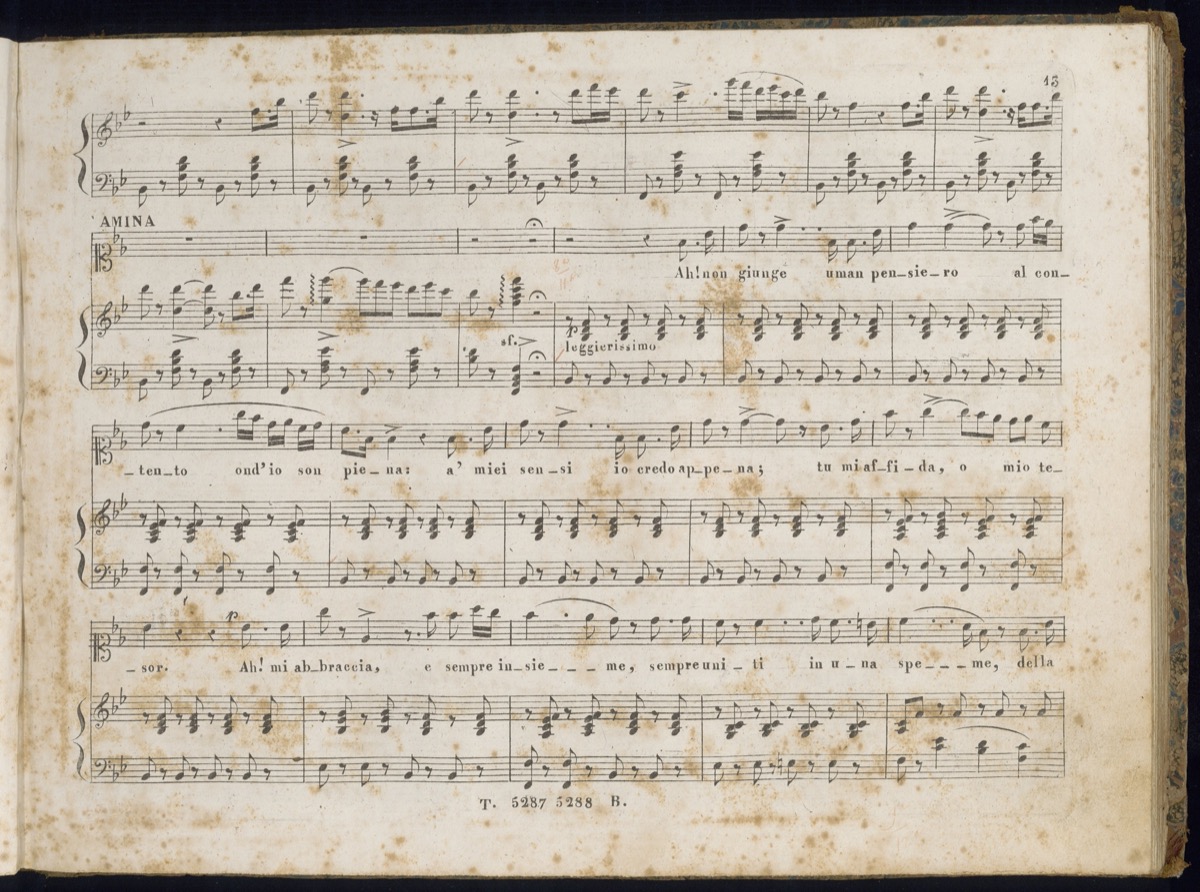 13
AMINA
Ah! non giunge uman pen_sie_ro al con_
sf.
p
leggierissimo
_ten_to ond'io son pie_na: a' miei sen_si io credo ap_pe_na; tu mi af_fi_da, o mio te_
p
_sor. Ah! mi ab_braccia, e sempre in_sie___me, sempre uni_ti in u_na spe___me, della
T. 5287 5288 B.